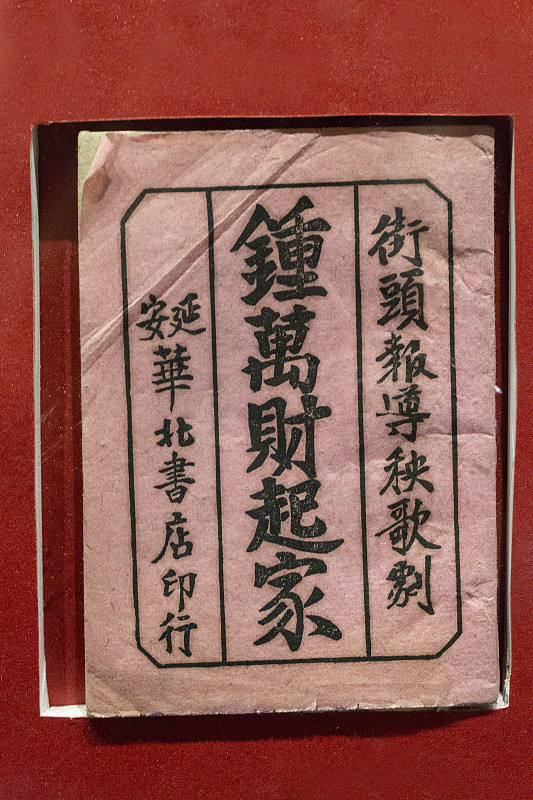 街頭報導秧歌劇
鍾萬財起家
延安華北書店印行